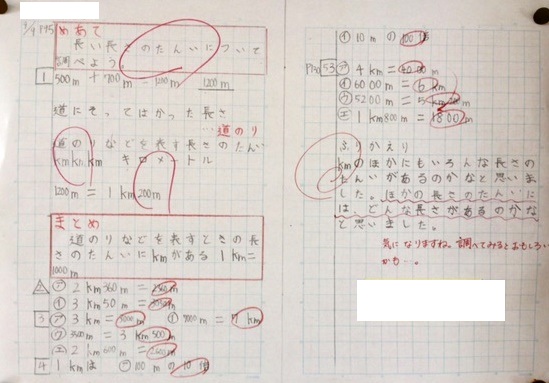 3/9 P95
めあて
長い長さのたんいについて
調べよう。
1 500m+700m=1200m 1200m
道にそってはかった長さ
…道のり
道のりなどを表す長さのたんい
km km km キロメートル
1200m = 1km 200m
まとめ
道のりなどを表すときの長
さのたんいにkmがある 1km=
1000m
2 ㋐ 2km360m=2360m
㋑ 3km50m=3050m
3 ㋐ 3km=3000m ㋑ 7000m=7km
㋒ 3500m=3km500m
㋓ 2km600m=2600m
4 1kmは ㋐ 100mの10倍
㋑ 10mの100倍
53 ㋐ 4km=4000m
㋑ 6000=6km
㋒ 5200m=5km200m
㋓ 1km800m=1800m
ふりかえり
kmのほかにもいろんな長さの
たんいがあるのかなと思いま
した。ほかの長さのたんいに
は、どんな長さがあるのかな
と思いました。
気になりますね。調べてみるとおもしろい
かも…。